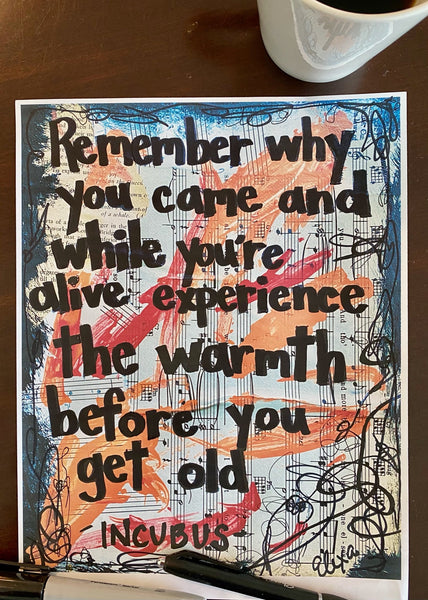 Remember why
you came and
while you're
alive experience
the warmth
before you
get old
-INCUBUS-
elixa